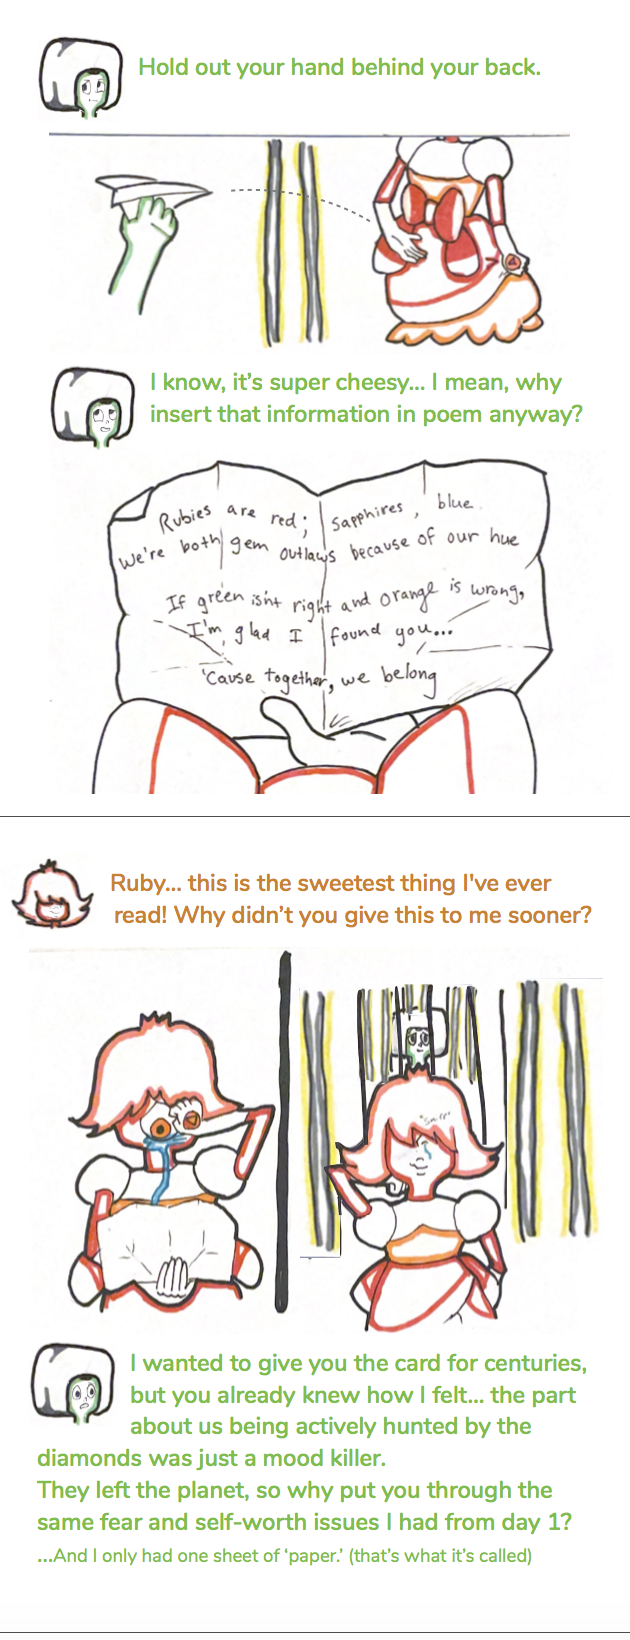 Hold out your hand behind your back.
I know, it's super cheesy... I mean, why
insert that information in poem anyway?
Rubies are red; Sapphires, blue.
We're both gem outlaws because of our hue
If green isn't right and orange is wrong,
I'm glad I found you...
'Cause together, we belong
Ruby... this is the sweetest thing I've ever
read! Why didn't you give this to me sooner?
I wanted to give you the card for centuries,
but you already knew how I felt... the part
about us being actively hunted by the
diamonds was just a mood killer.
They left the planet, so why put you through the
same fear and self-worth issues I had from day 1?
...And I only had one sheet of 'paper.' (that's what it's called)